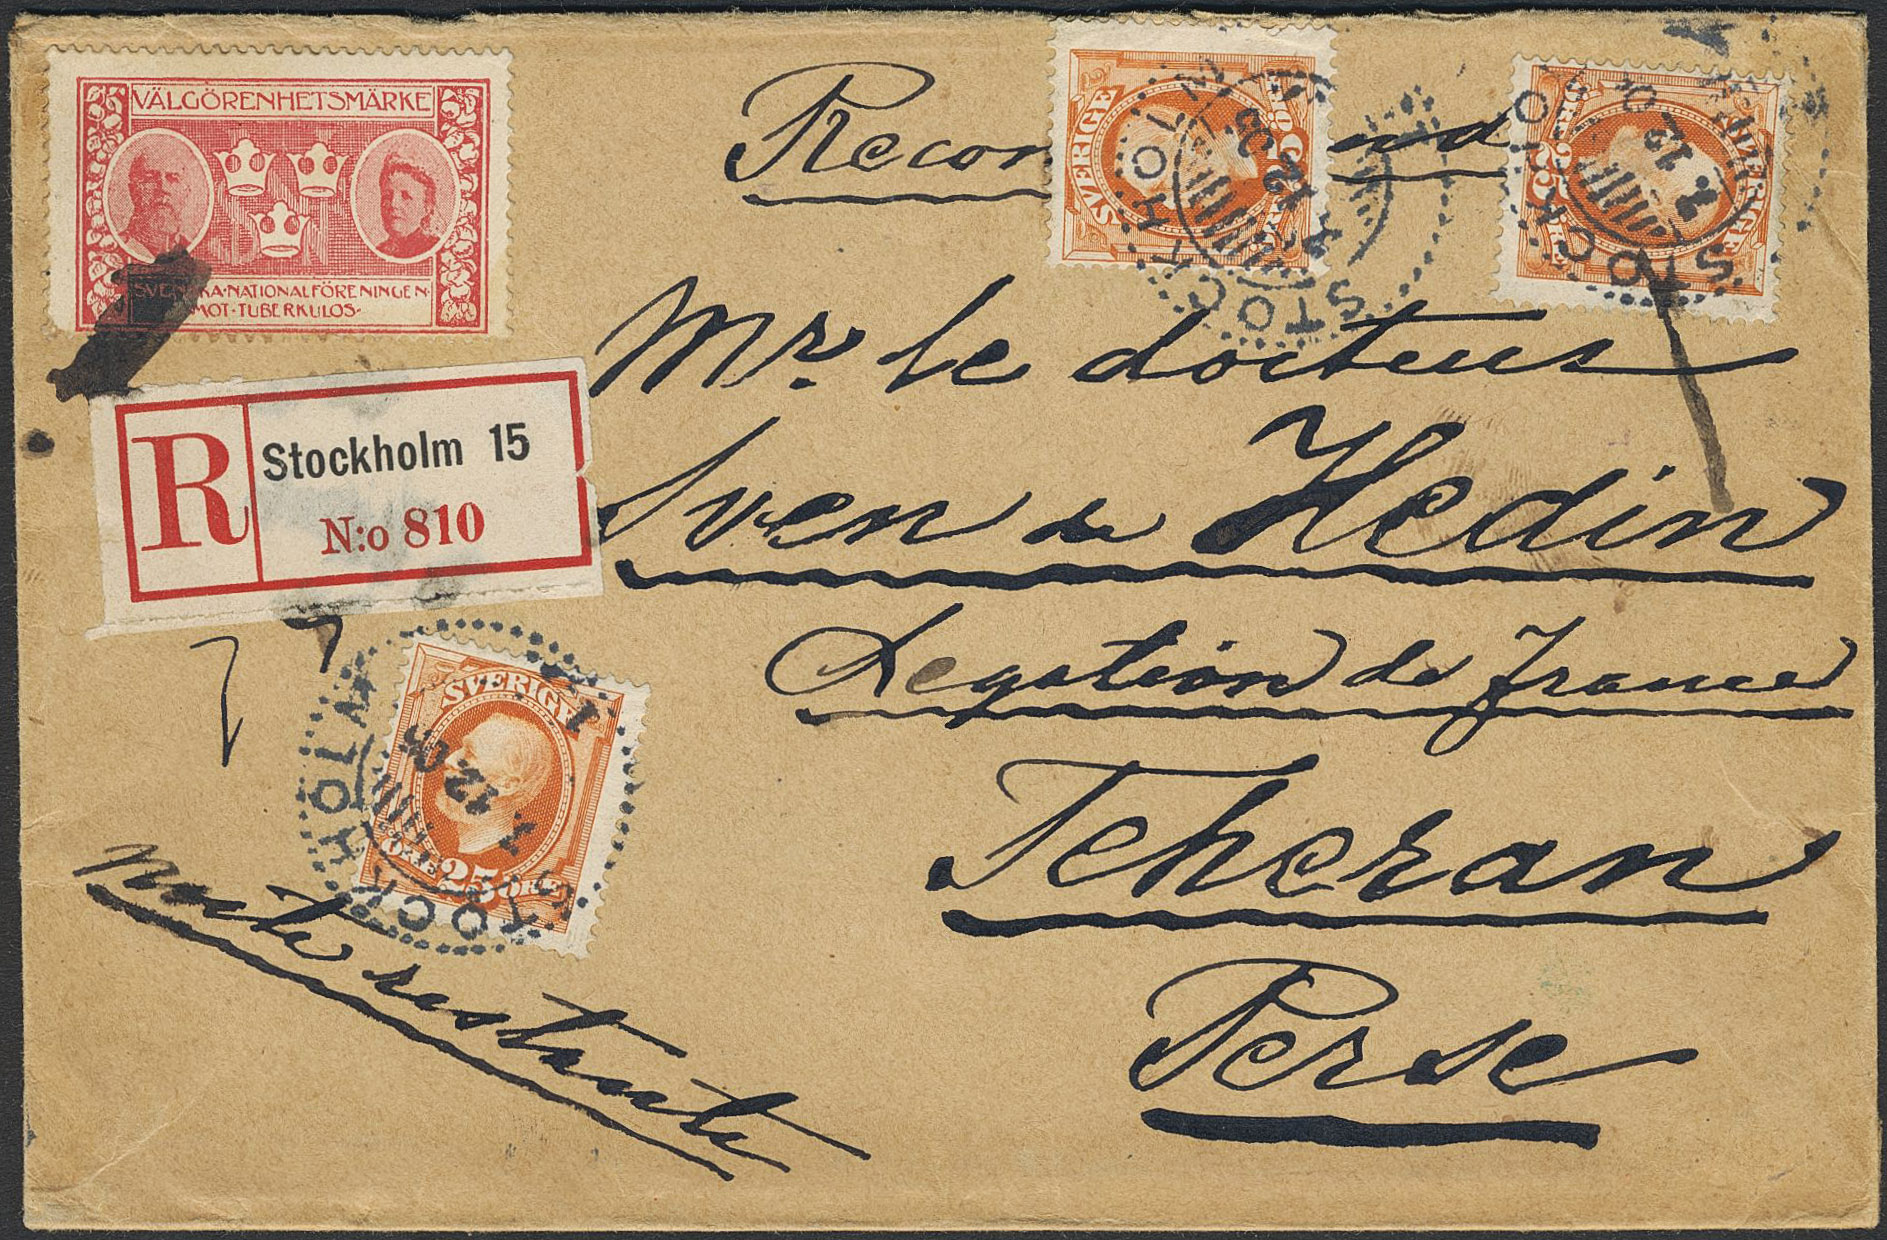 VÄLGÖRENHETSMÄRKE
SVENSKA·NATIONALFÖRENINGEN·
MOT·TUBERKULOS·
SVERIGE
25 ÖRE
STOCKHOLM
1 12 05
SVERIGE
25 ÖRE
STOCKHOLM
1 12 05
R
Stockholm 15
N:o 810
Mr. le docteur
Sven de Hedin
Légation de France
Teheran
Perse
SVERIGE
25 ÖRE
STOCKHOLM
1 12 05
poste restante